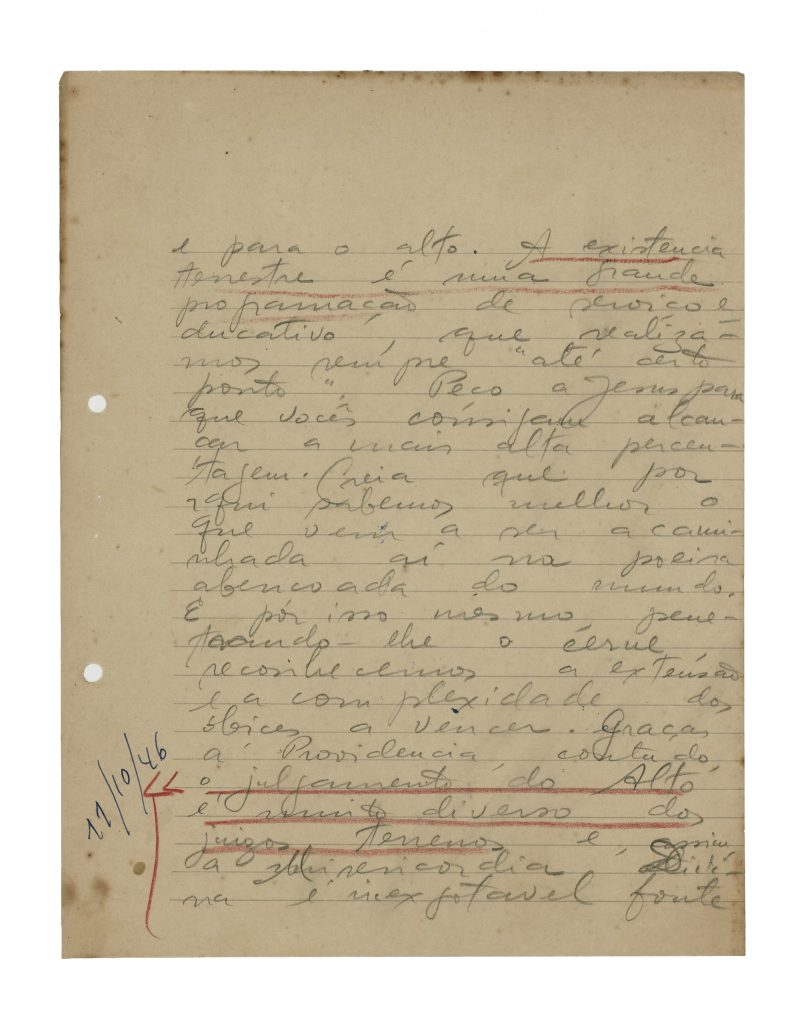 e para o alto. A existencia
terrestre é uma grande
programação de serviço e
ducativo, que realizá-
mos sempre "até certo
ponto". Peço a Jesus para
que vocês consigam alcan-
çar a mais alta percen-
tagem. Creia que por
aqui sabemos melhor o
que vem a ser a cami-
nhada aí na poeira
abençoada do mundo.
E por isso mesmo, pene-
trando-lhe o cerne,
reconhecemos a extensão
e a complexidade dos
óbices a vencer. Graças
á Providencia, contudo,
o julgamento do Alto
é muito diverso dos
juizos terrenos e, assim
a Misericordia Divi-
na é inexgotavel fonte
11/10/46